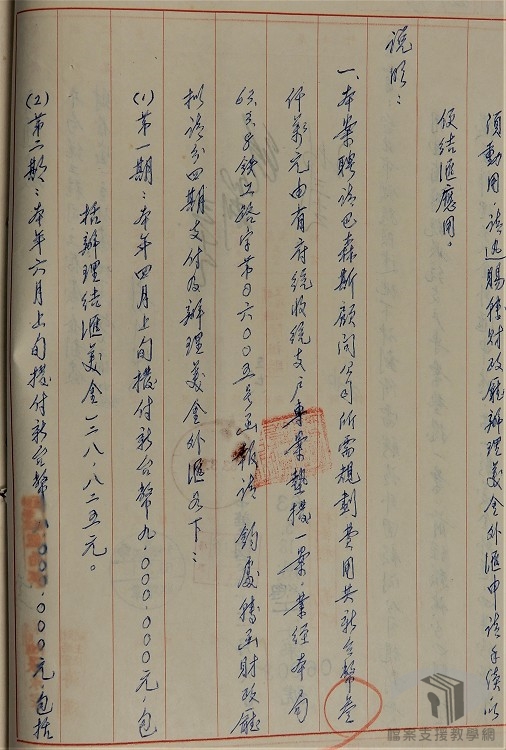 須動用，請迅賜轉財政廳辦理美金外滙申請手續以
便結滙應用。
說明：
一、本案聘請巴森斯顧問公司所需規劃費用共新台幣叁
仟萬元由省府統收統支戶專案墊撥一案，業經本局
鐵工 字第 六〇〇五號函報請 鈞處轉函財政廳
擬請分四期支付及辦理美金外滙如下：
(1)第一期：本年四月上旬撥付新台幣九、〇〇〇、〇〇〇元，包
括辦理結滙美金一二八、八二五元。
(2)第二期：本年六月上旬撥付新台幣 、〇〇〇、〇〇〇元包括
檔案支援教學網